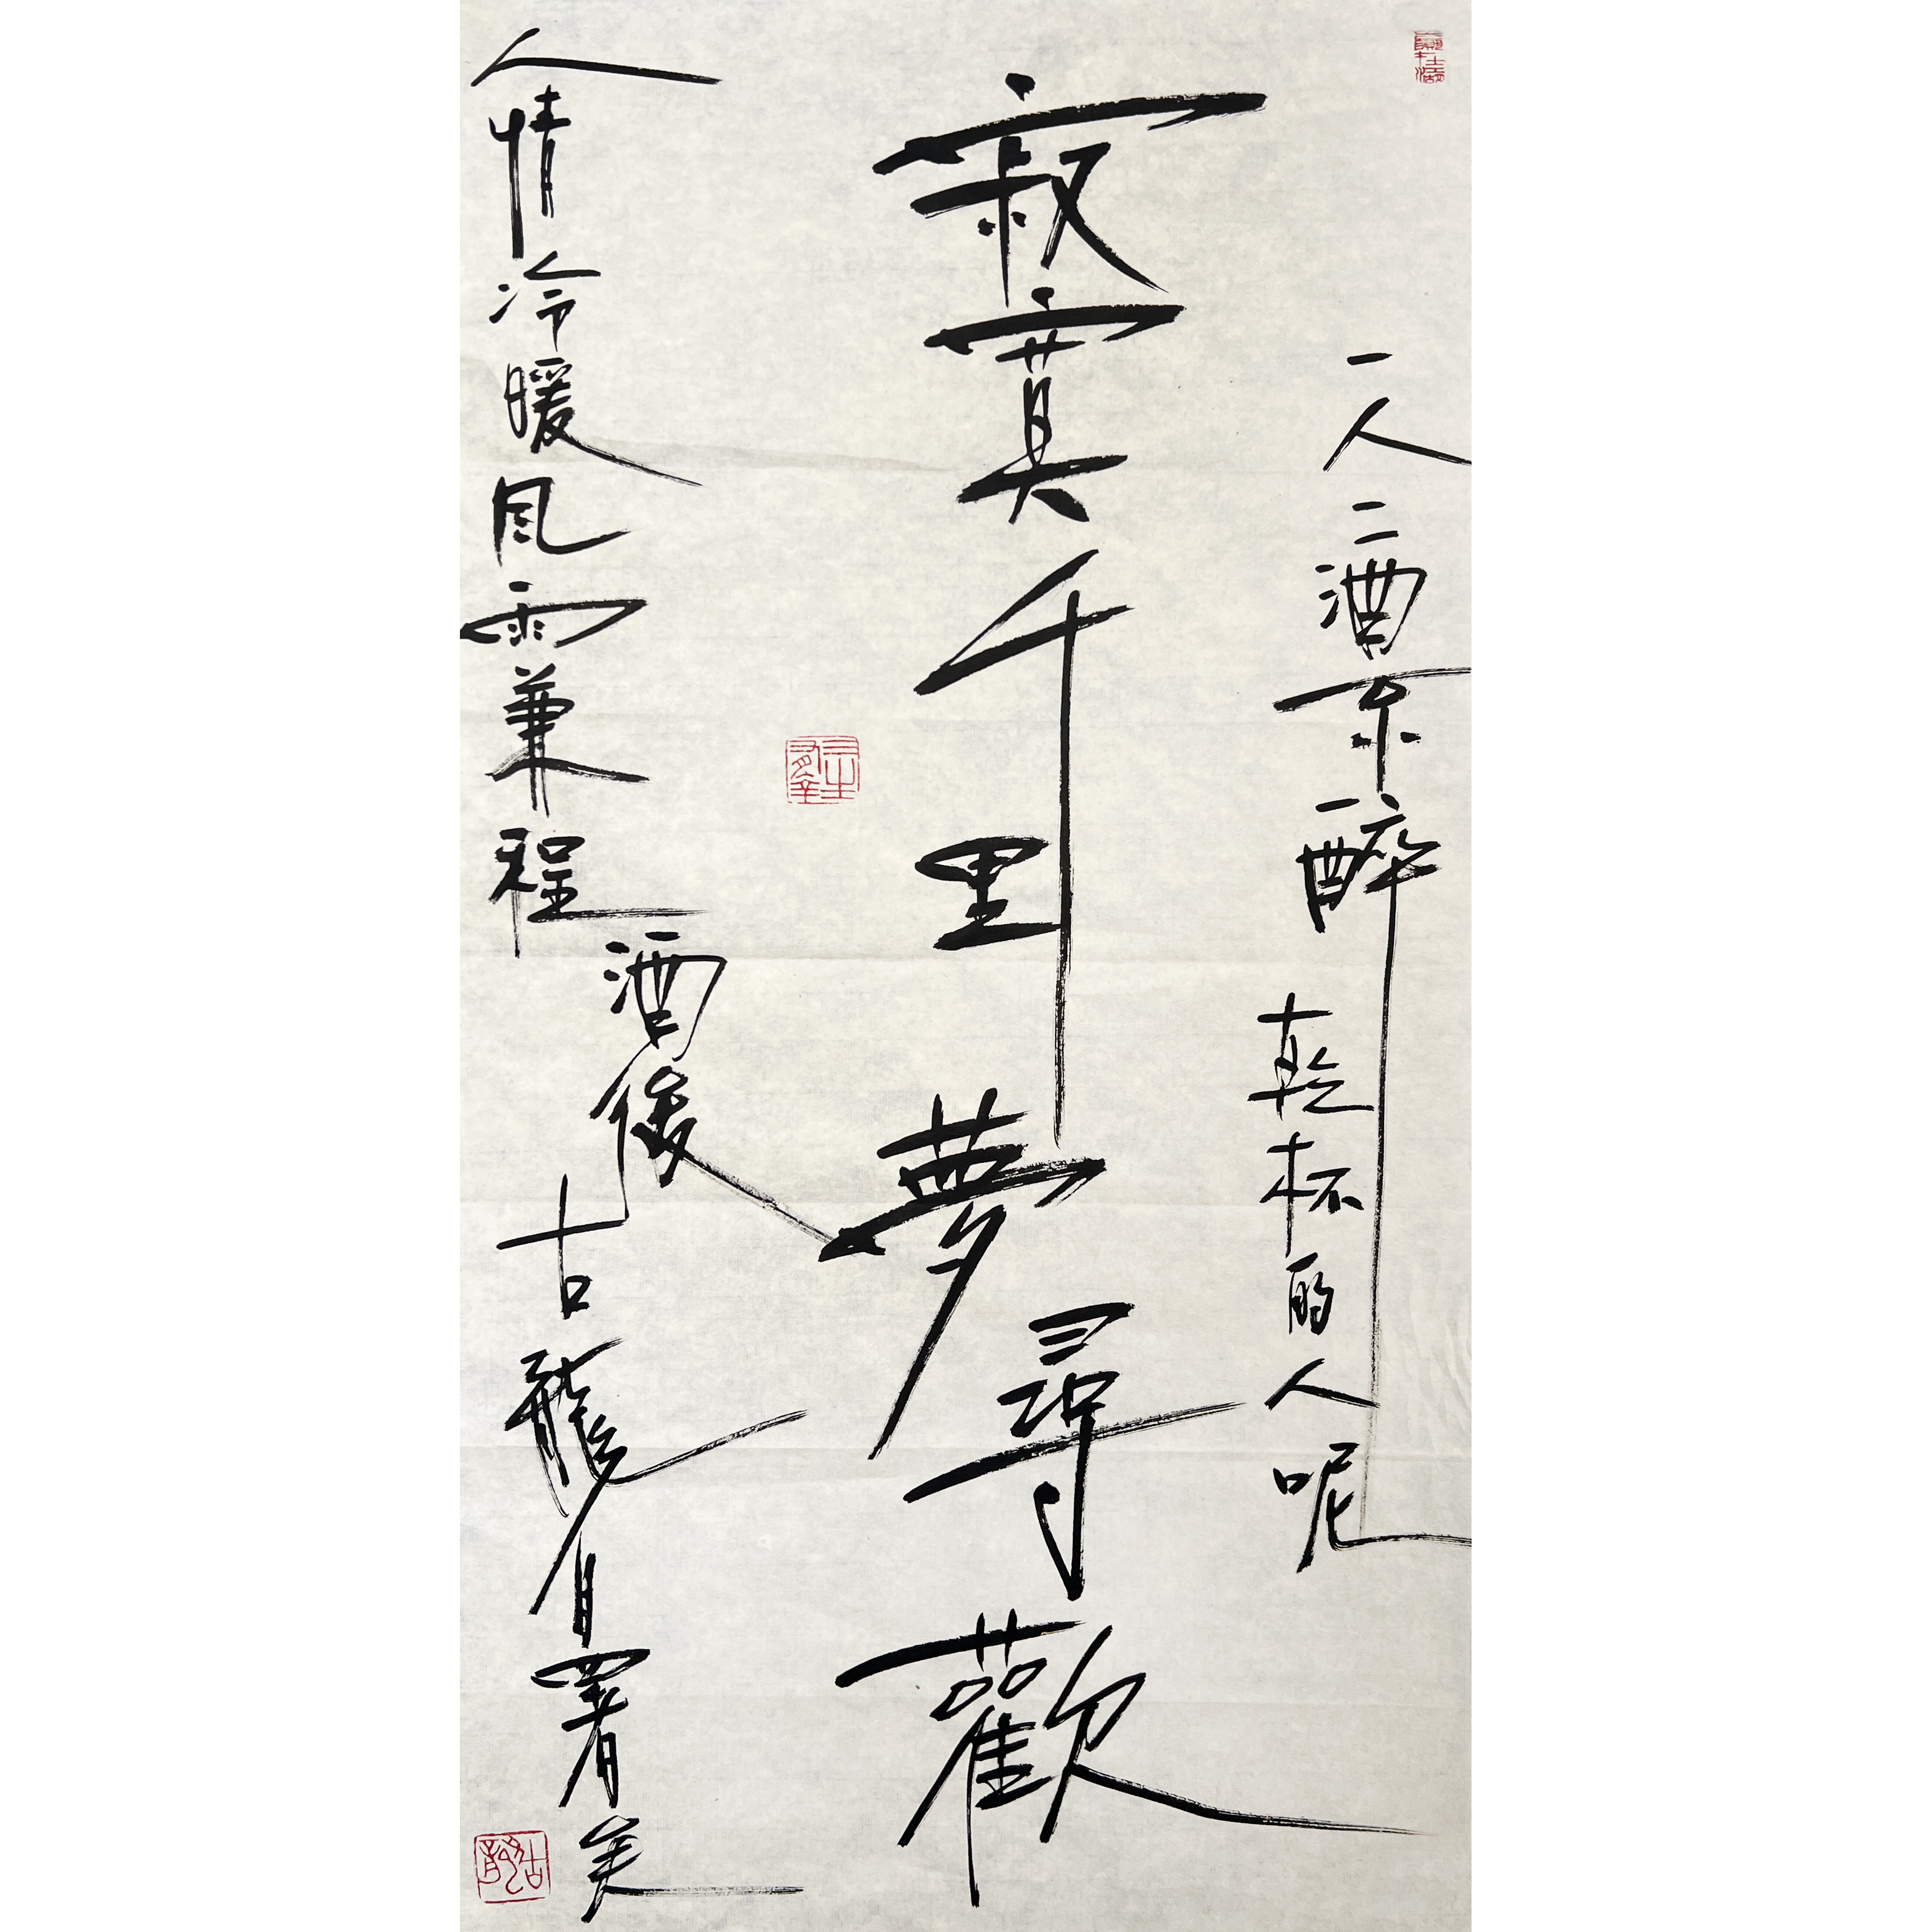 一人二酒不醉
乾杯的人呢
寂寞千里夢尋歡
人情冷暖風雨兼程
酒後
古龍自署
古龍